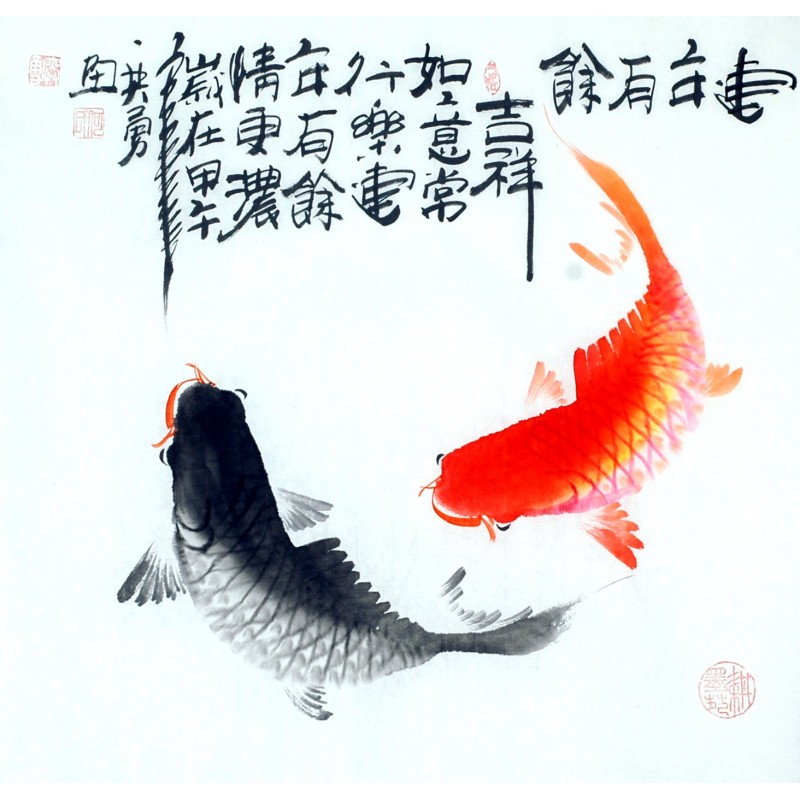 連年有餘
吉祥
如意常
行樂連
年有餘
情更濃
歲在甲午
年
英勇
画